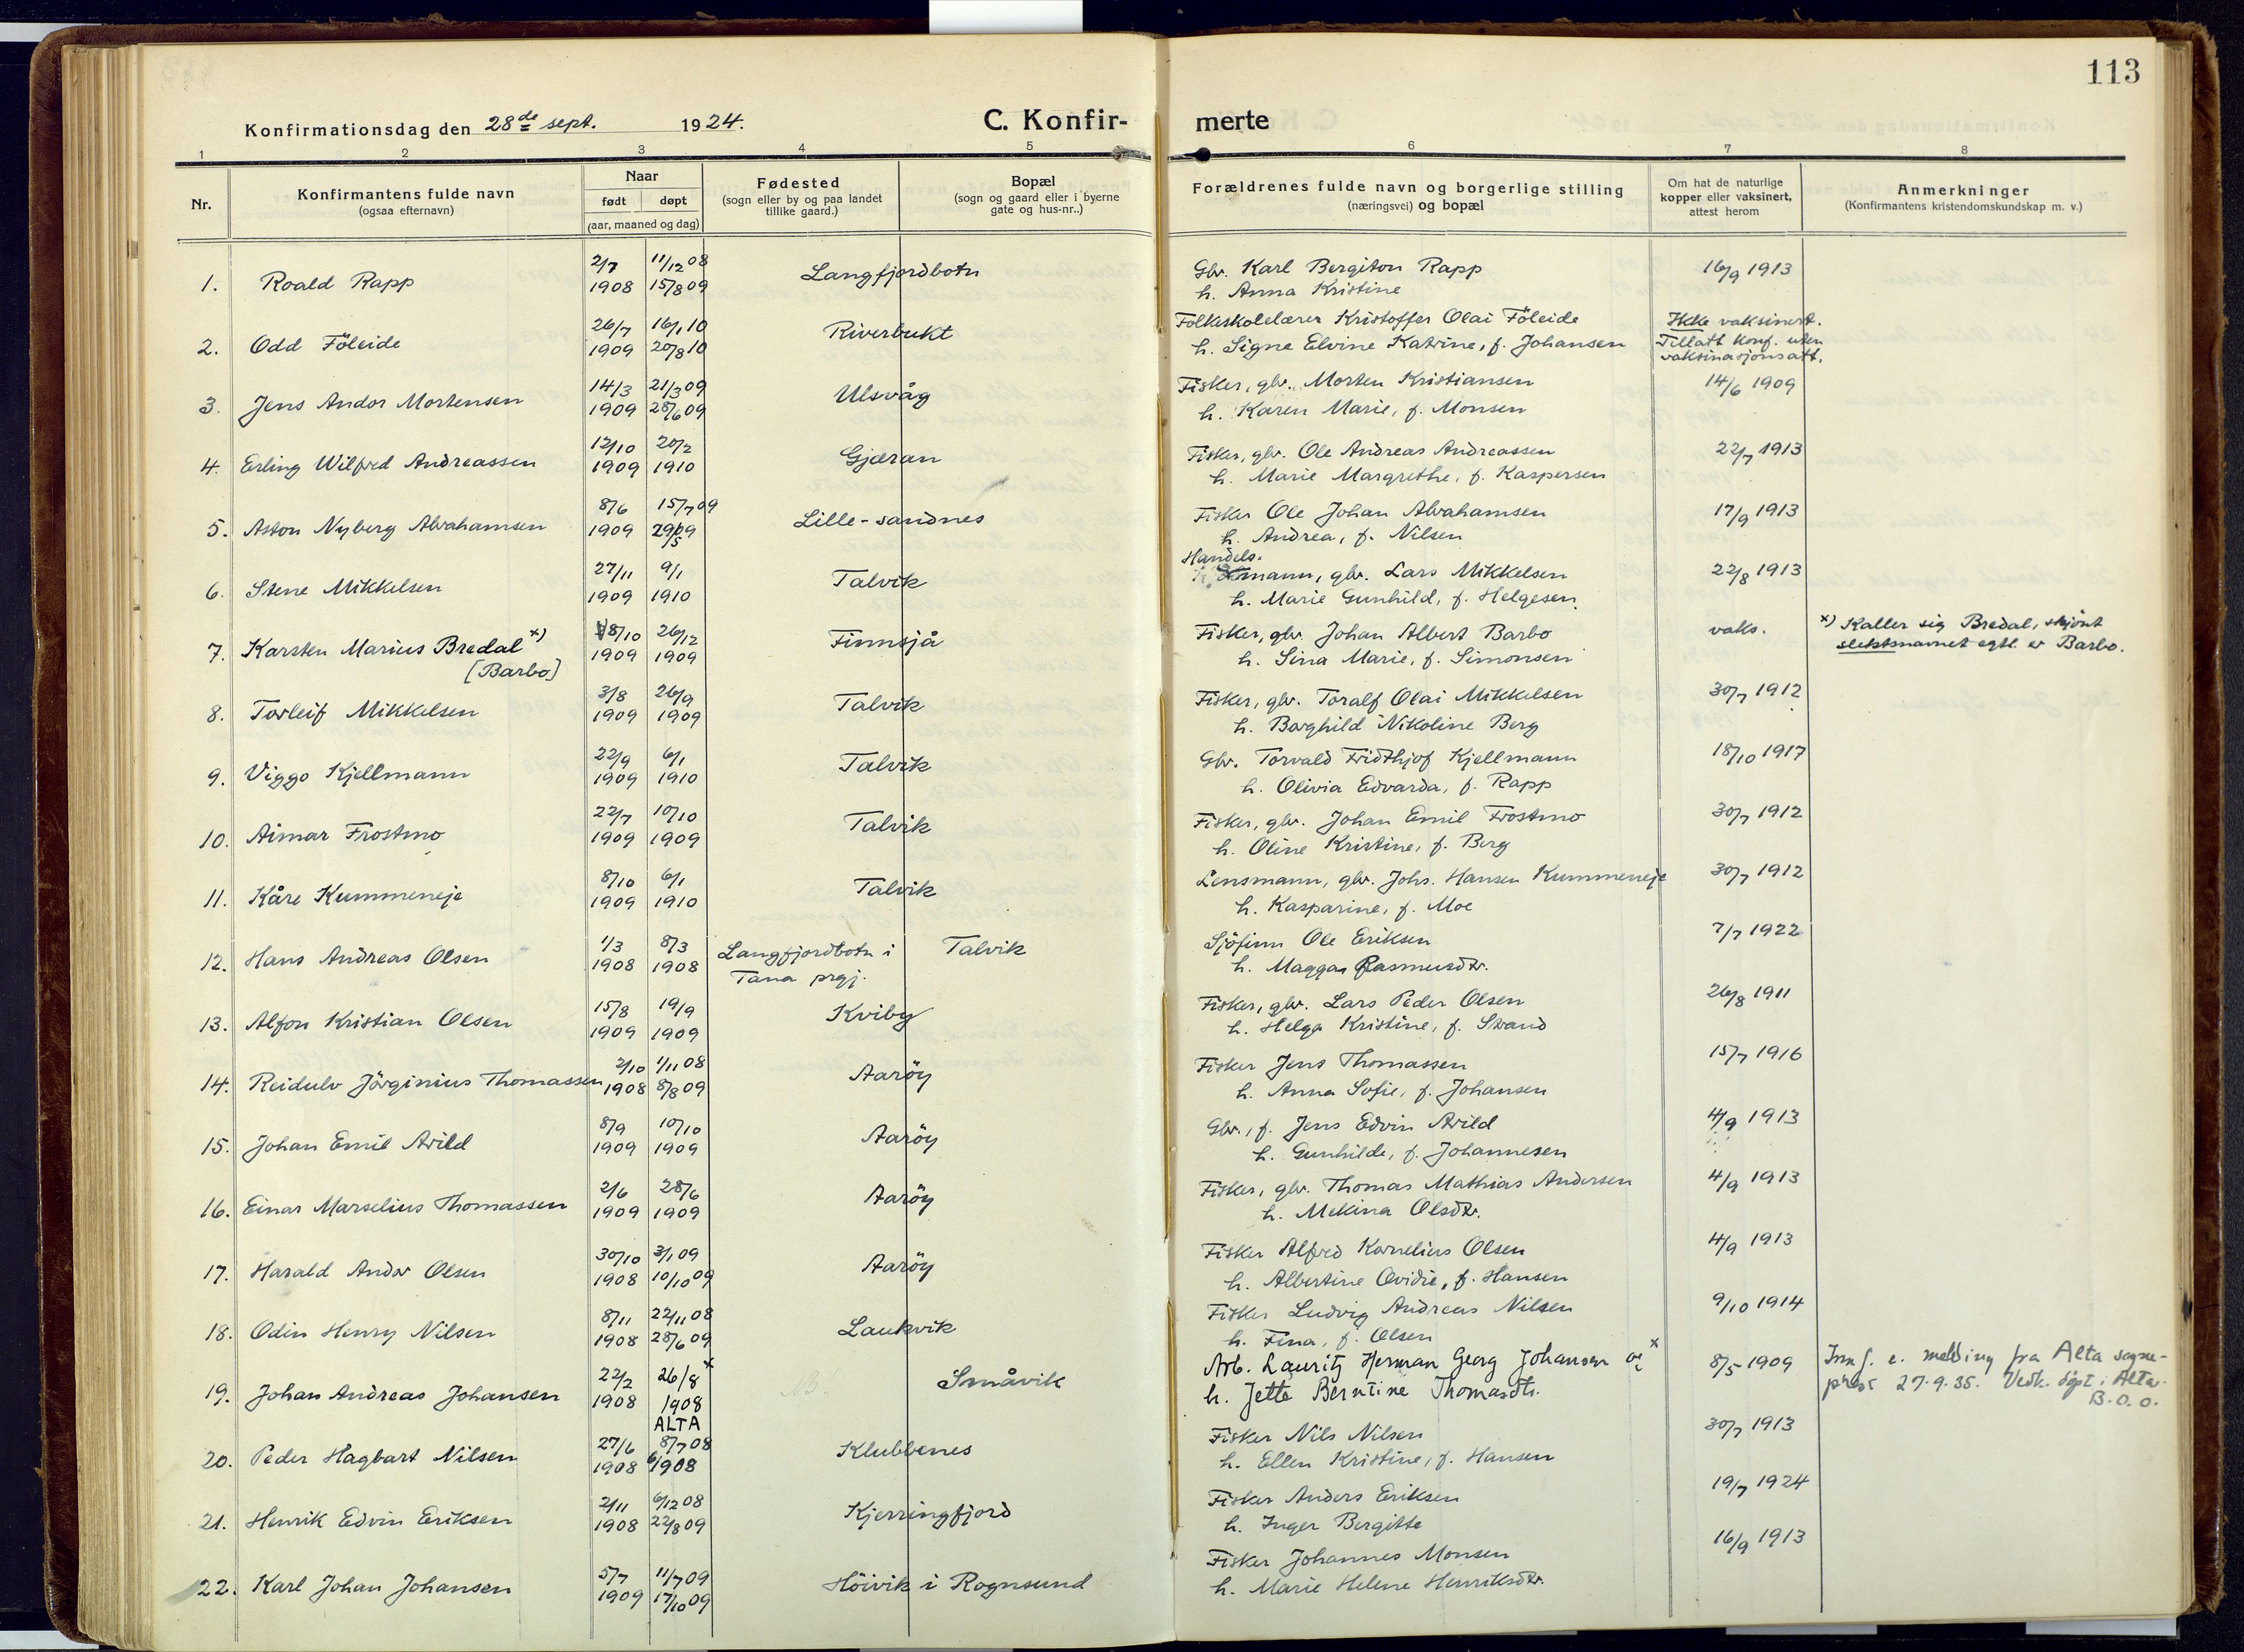 113
Konfirmationsdag den 28de sept. 1924.
C. Konfir- merte
1 2 3 4 5 6 7 8
Nr.
Konfirmantens fulde navn
(ogsaa efternavn)
Naar
født døpt
(aar, maaned og dag)
Fødested
(sogn eller by og paa landet
tillike gaard.)
Bopæl
(sogn og gaard eller i byerne
gate og hus-nr..)
Forældrenes fulde navn og borgerlige stilling
(næringsvei) og bopæl
Om hat de naturlige
kopper eller vaksinert,
attest herom
Anmerkninger
(Konfirmantens kristendomskundskap m. v.)
1. Roald Rapp 2/7 1908 11/12 08 15/8 09 Langfjordbotn Gbr. Karl Bergiton Rapp 16/9 1913
h. Anna Kristine
2. Odd Föleide 26/7 1909 16/1 10 20/8 10 Riverbukt Folkeskolelærer Kristoffer Olai Föleide Ikke vaksinert.
h. Signe Elvine Katrine, f. Johansen Tillatt konf. uten
vaksinasjonsatt.
3. Jens Andor Mortensen 14/3 1909 21/3 09 28/6 09 Ulsvåg Fisker, gbr. Morten Kristiansen 14/6 1909
h. Karen Marie, f. Monsen
4. Erling Wilfred Andreassen 12/10 1909 20/2 1910 Gjæran Fisker, gbr. Ole Andreas Andreassen 22/7 1913
h. Marie Margrethe, f. Kaspersen
5. Aston Nyberg Abrahamsen 8/6 1909 15/7 09 Lille-sandnes Fisker Ole Johan Abrahamsen 17/9 1913
h. Andrea, f. Nilsen
6. Stene Mikkelsen 27/11 1909 9/1 1910 Talvik Handels-mann, gbr. Lars Mikkelsen 22/8 1913
h. Marie Gunhild, f. Helgesen
7. Karsten Marius Bredal x) 8/10 1909 26/12 1909 Finnsjå Fisker, gbr. Johan Albert Barbo vaks. x) Kaller sig Bredal, skjönt
[Barbo] h. Sina Marie, f. Simonsen slektsnavnet egtl. er Barbo.
8. Torleif Mikkelsen 3/8 1909 26/9 1909 Talvik Fisker, gbr. Toralf Olai Mikkelsen 30/7 1912
h. Borghild Nikoline Berg
9. Viggo Kjellmann 22/9 1909 6/1 1910 Talvik Gbr. Torvald Fridthjof Kjellmann 18/10 1917
h. Olivia Edvarda, f. Rapp
10. Aimar Frostmo 22/7 1909 10/10 1909 Talvik Fisker, gbr. Johan Emil Frostmo 30/7 1912
h. Oline Kristine, f. Berg
11. Kåre Kummeneje 8/10 1909 6/1 1910 Talvik Lensmann, gbr. Johs. Hansen Kummeneje 30/7 1912
h. Kasparine, f. Moe
12. Hans Andreas Olsen 1/3 1908 8/3 1908 Langfjordbotn i Talvik Sjöfinn Ole Eriksen 7/7 1922
Tana prgj. h. Maggan Rasmusdtr.
13. Alfon Kristian Olsen 15/8 1909 19/9 1909 Kviby Fisker, gbr. Lars Peder Olsen 26/8 1911
h. Helga Kristine, f. Strand
14. Reidulv Jörginius Thomassen 2/10 1908 1/11 08 8/8 09 Aaröy Fisker Jens Thomassen 15/7 1916
h. Anna Sofie, f. Johansen
15. Johan Emil Arild 8/9 1909 10/10 1909 Aaröy Gbr., f. Jens Edvin Arild 4/9 1913
h. Gunhilde, f. Johannesen
16. Einar Marselius Thomassen 2/6 1909 28/6 1909 Aaröy Fisker, gbr. Thomas Mathias Andersen 4/9 1913
h. Mekina Olsdtr.
17. Harald Andor Olsen 30/10 1908 3/1 09 10/10 09 Aaröy Fisker Alfred Kornelius Olsen 4/9 1913
h. Albertine Ovidie, f. Hansen
18. Odin Henry Nilsen 8/11 1908 22/11 08 28/6 09 Laukvik Fisker Ludvig Andreas Nilsen 9/10 1914
h. Fina, f. Olsen
19. Johan Andreas Johansen 22/2 1908 26/8 x 1908 ALTA Småvik Arb. Lauritz Herman Georg Johansen og x 8/5 1909 Innf. e. melding fra Alta sogne-
h. Jette Berntine Thomasdtr. prest 27.9.35. Vedk. döpt i Alta.
B.O.O.
20. Peder Hagbart Nilsen 27/6 1908 8/7 08 1908 Klubbenes Fisker Nils Nilsen 30/7 1913
h. Ellen Kristine, f. Hansen
21. Henrik Edvin Eriksen 2/11 1908 6/12 08 22/8 09 Kjerringfjord Fisker Anders Eriksen 19/7 1924
h. Inger Bergitte
22. Karl Johan Johansen 5/7 1909 11/7 09 17/10 09 Höivik i Rognsund Fisker Johannes Monsen 16/9 1913
h. Marie Helene Henriksdtr.